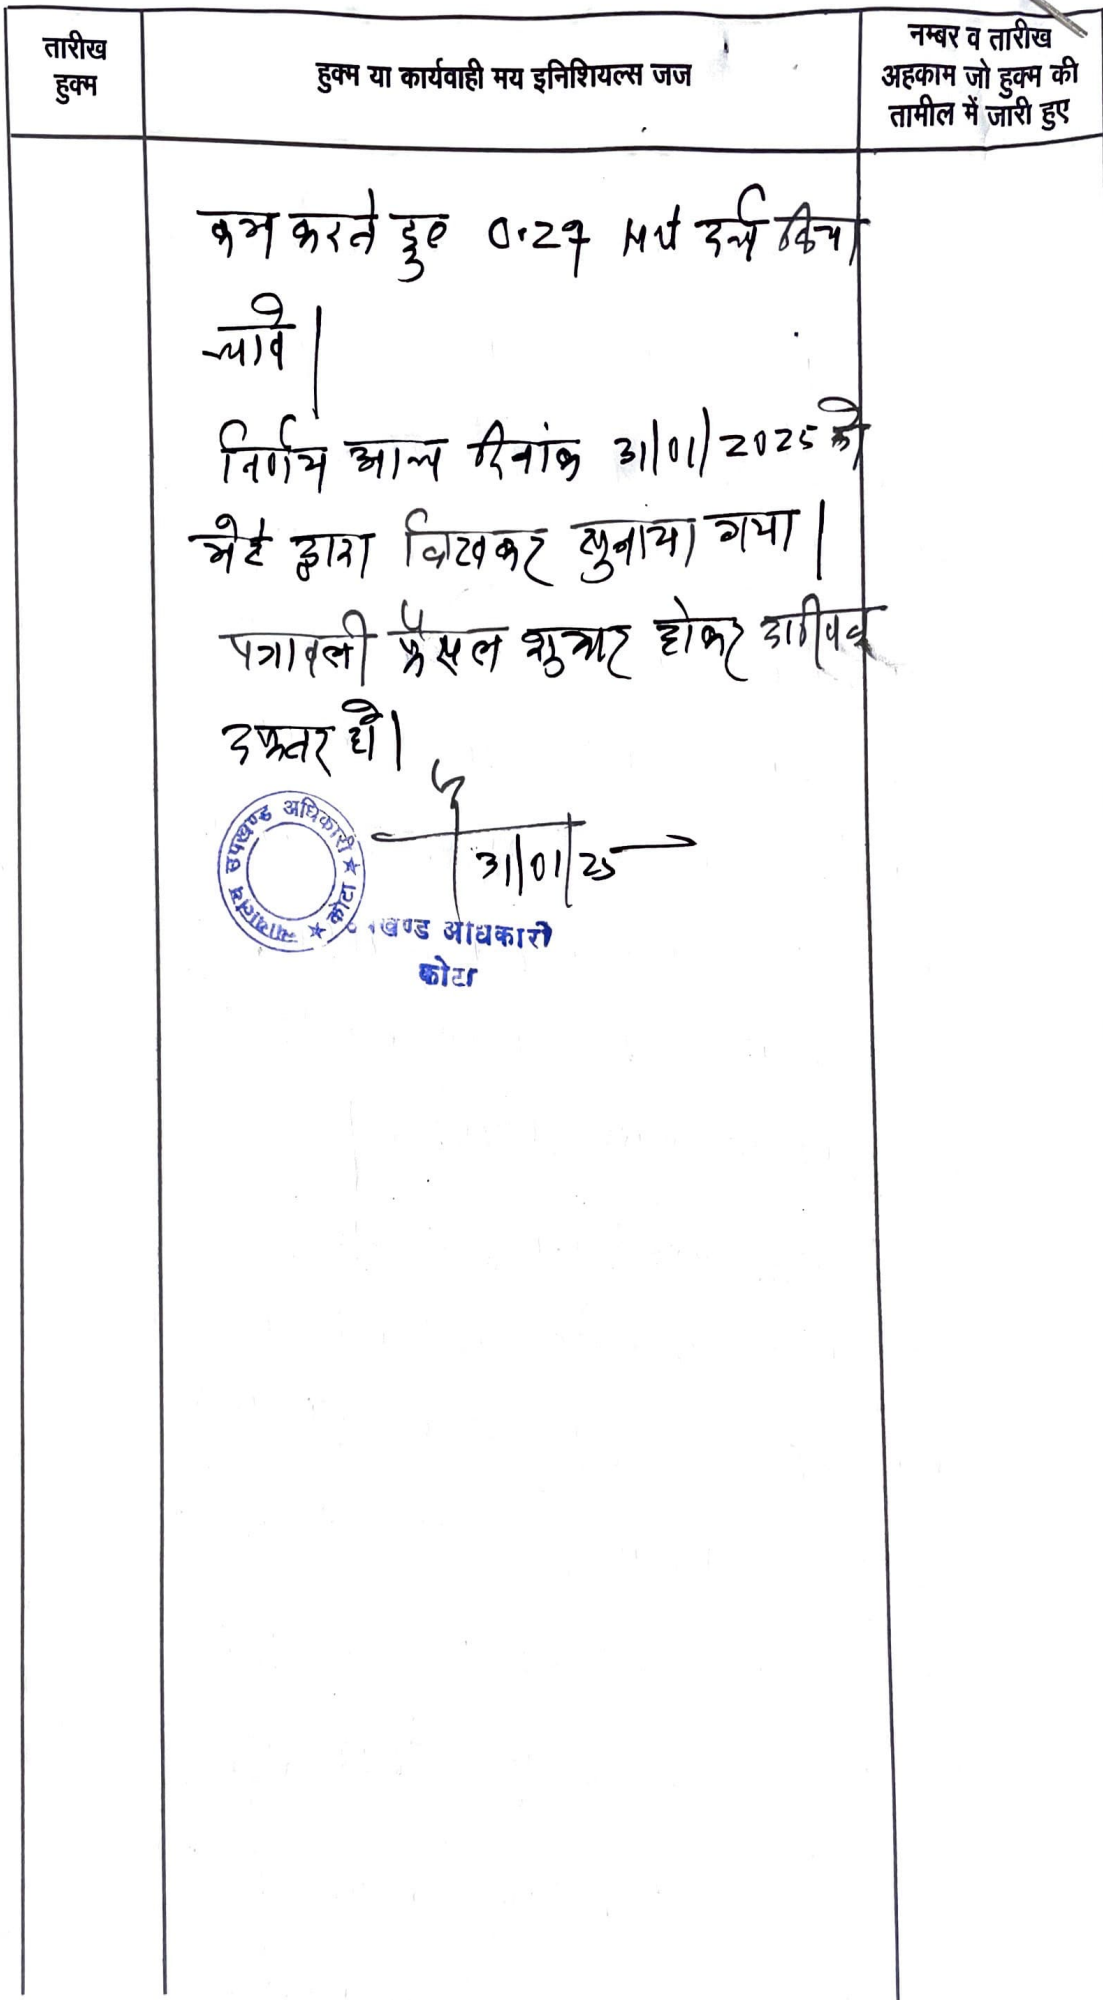 तारीख
हुक्म
हुक्म या कार्यवाही मय इनिशियल्स जज
नम्बर व तारीख
अहकाम जो हुक्म की
तामील में जारी हुए
कम करते हुए 0.27 दर्ज किया
जावे।
निर्णय आज दिनांक 31/01/2025 को
मेरे द्वारा लिखकर सुनाया गया।
पत्रावली फैसल शुमार होकर दाखिल
दफ्तर हो।
31/01/25
न्यायालय उपखण्ड अधिकारी ★ कोटा ★
खण्ड अधिकारी
कोटा